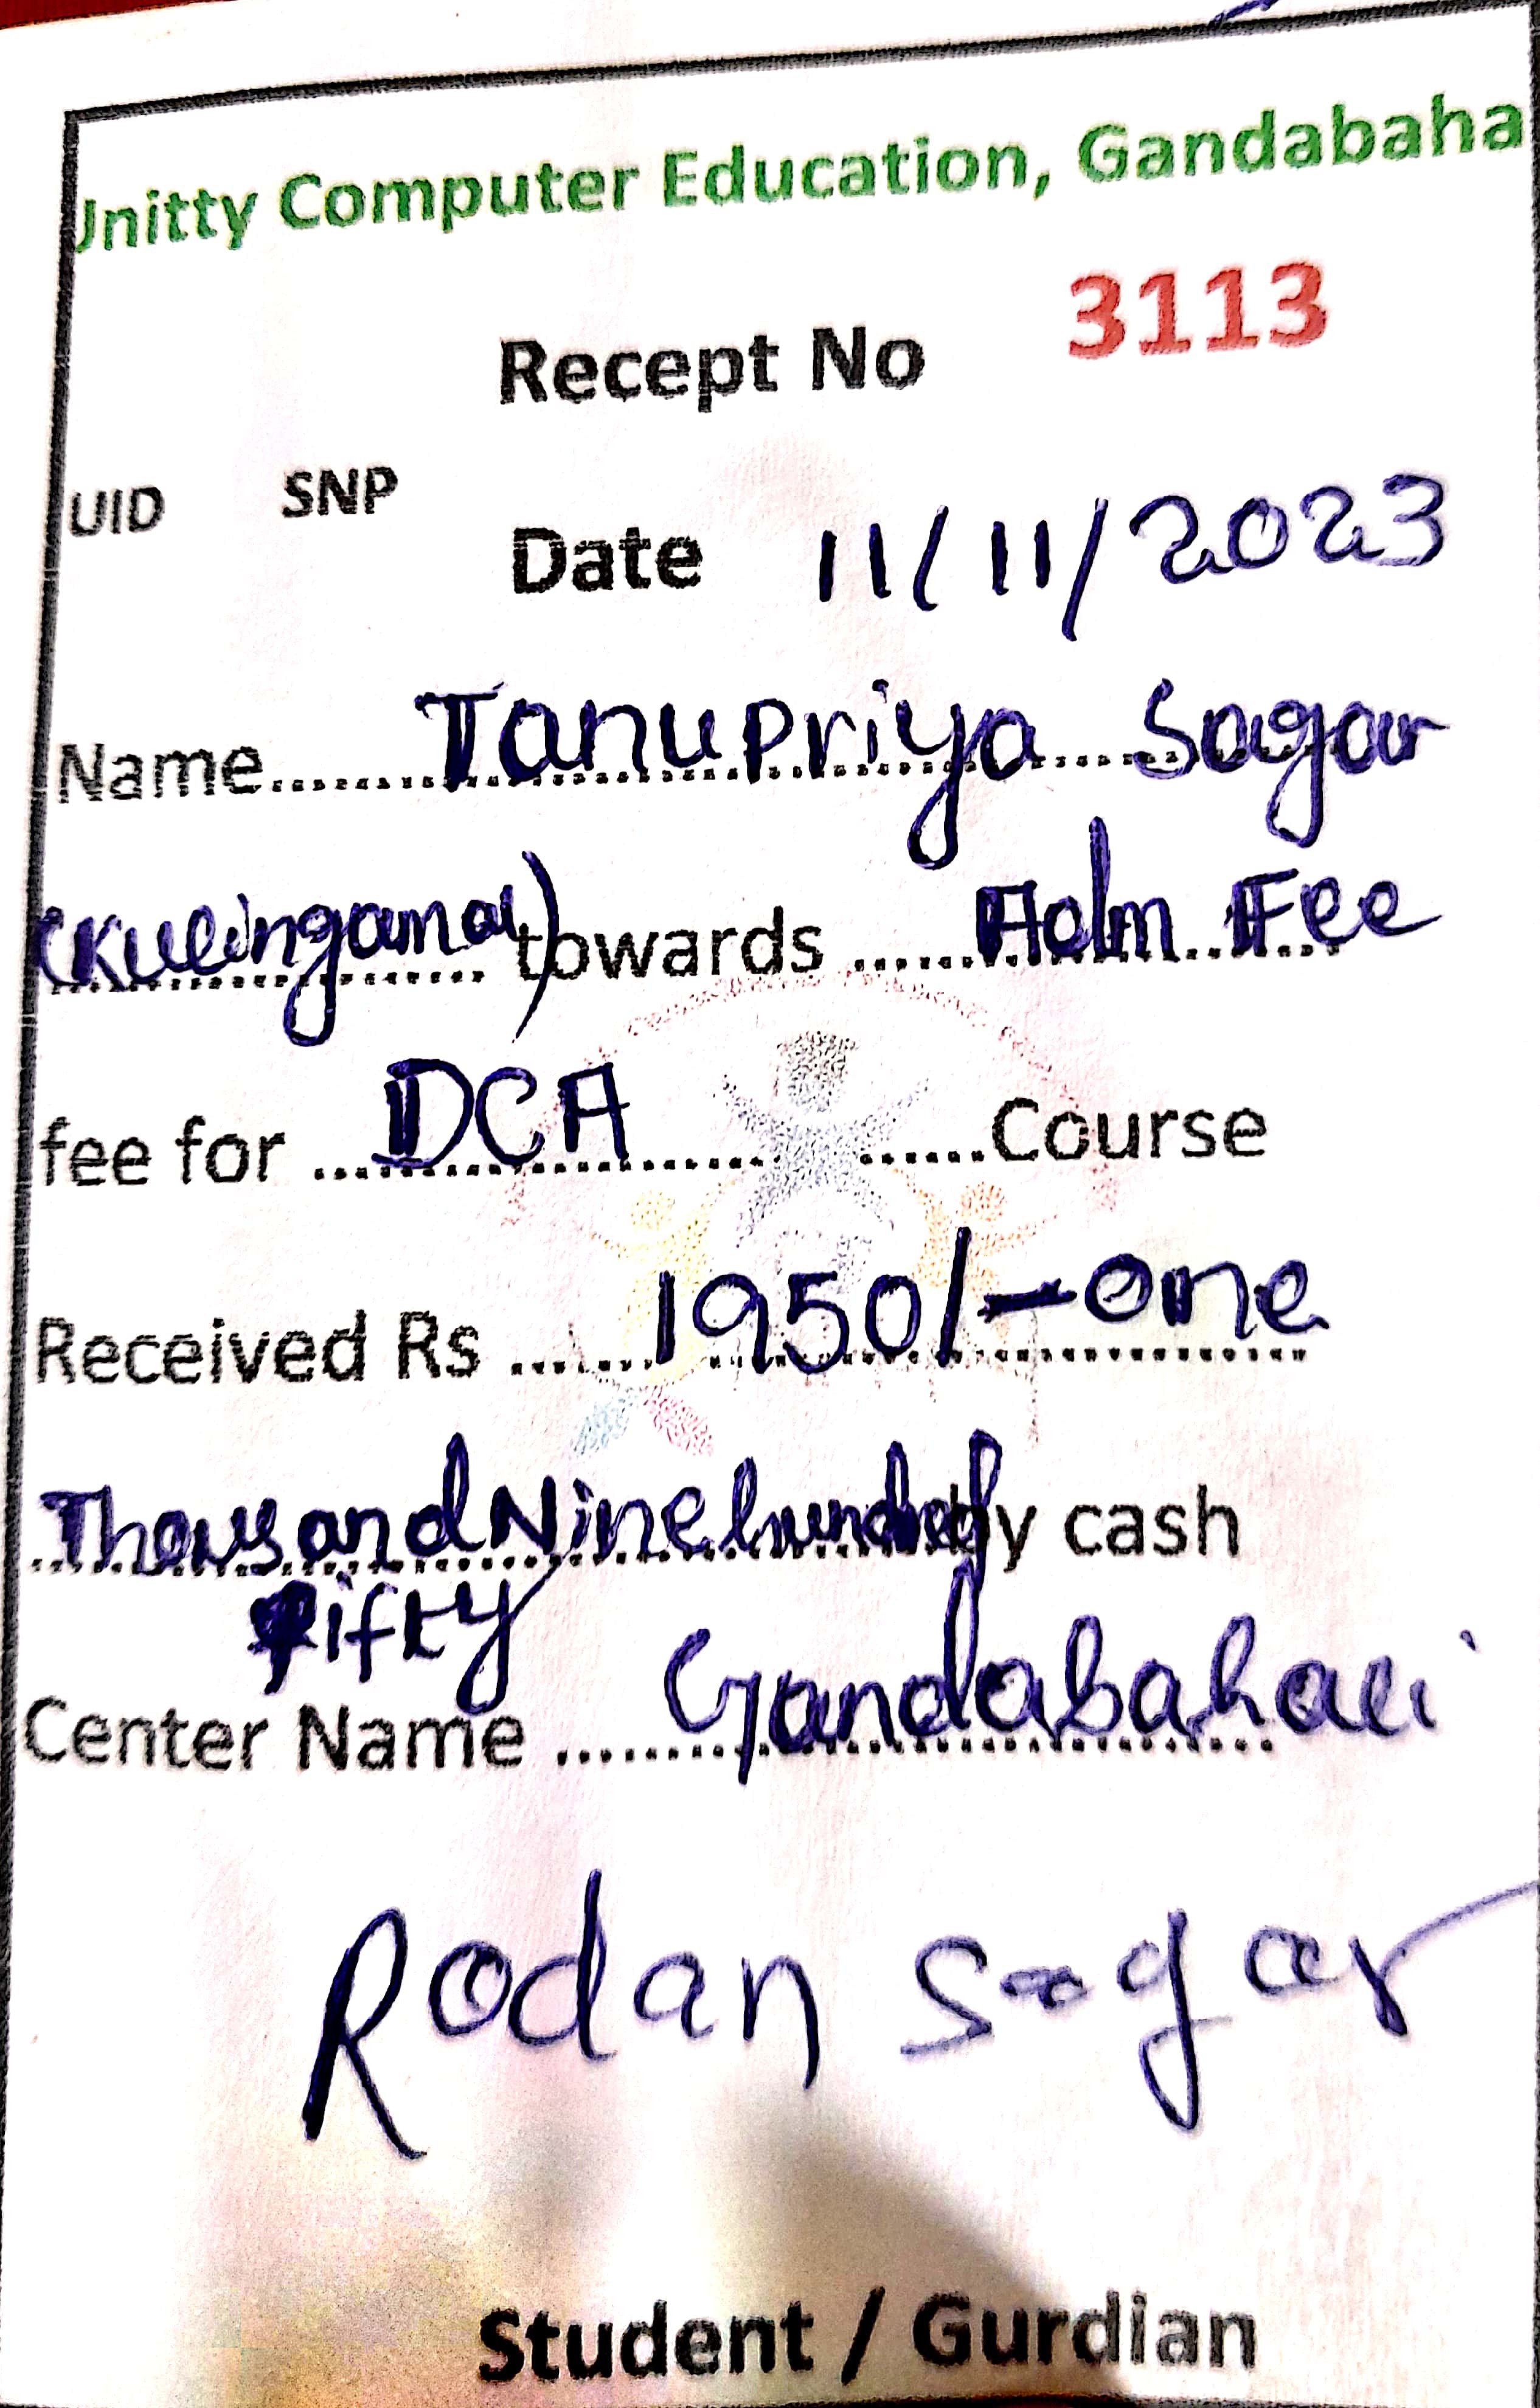 Unitty Computer Education, Gandabaha
Recept No 3113
UID SNP
Date 11/11/2023
Name........Tanupriya Sagar
(Kulingamal) towards ...... Adm Fee
fee for ....DCA............Course
Received Rs ......1950/- one
Thousand Nine hundred by cash
Fifty
Center Name ......Gandabahali
Rodan Sagar
Student / Gurdian